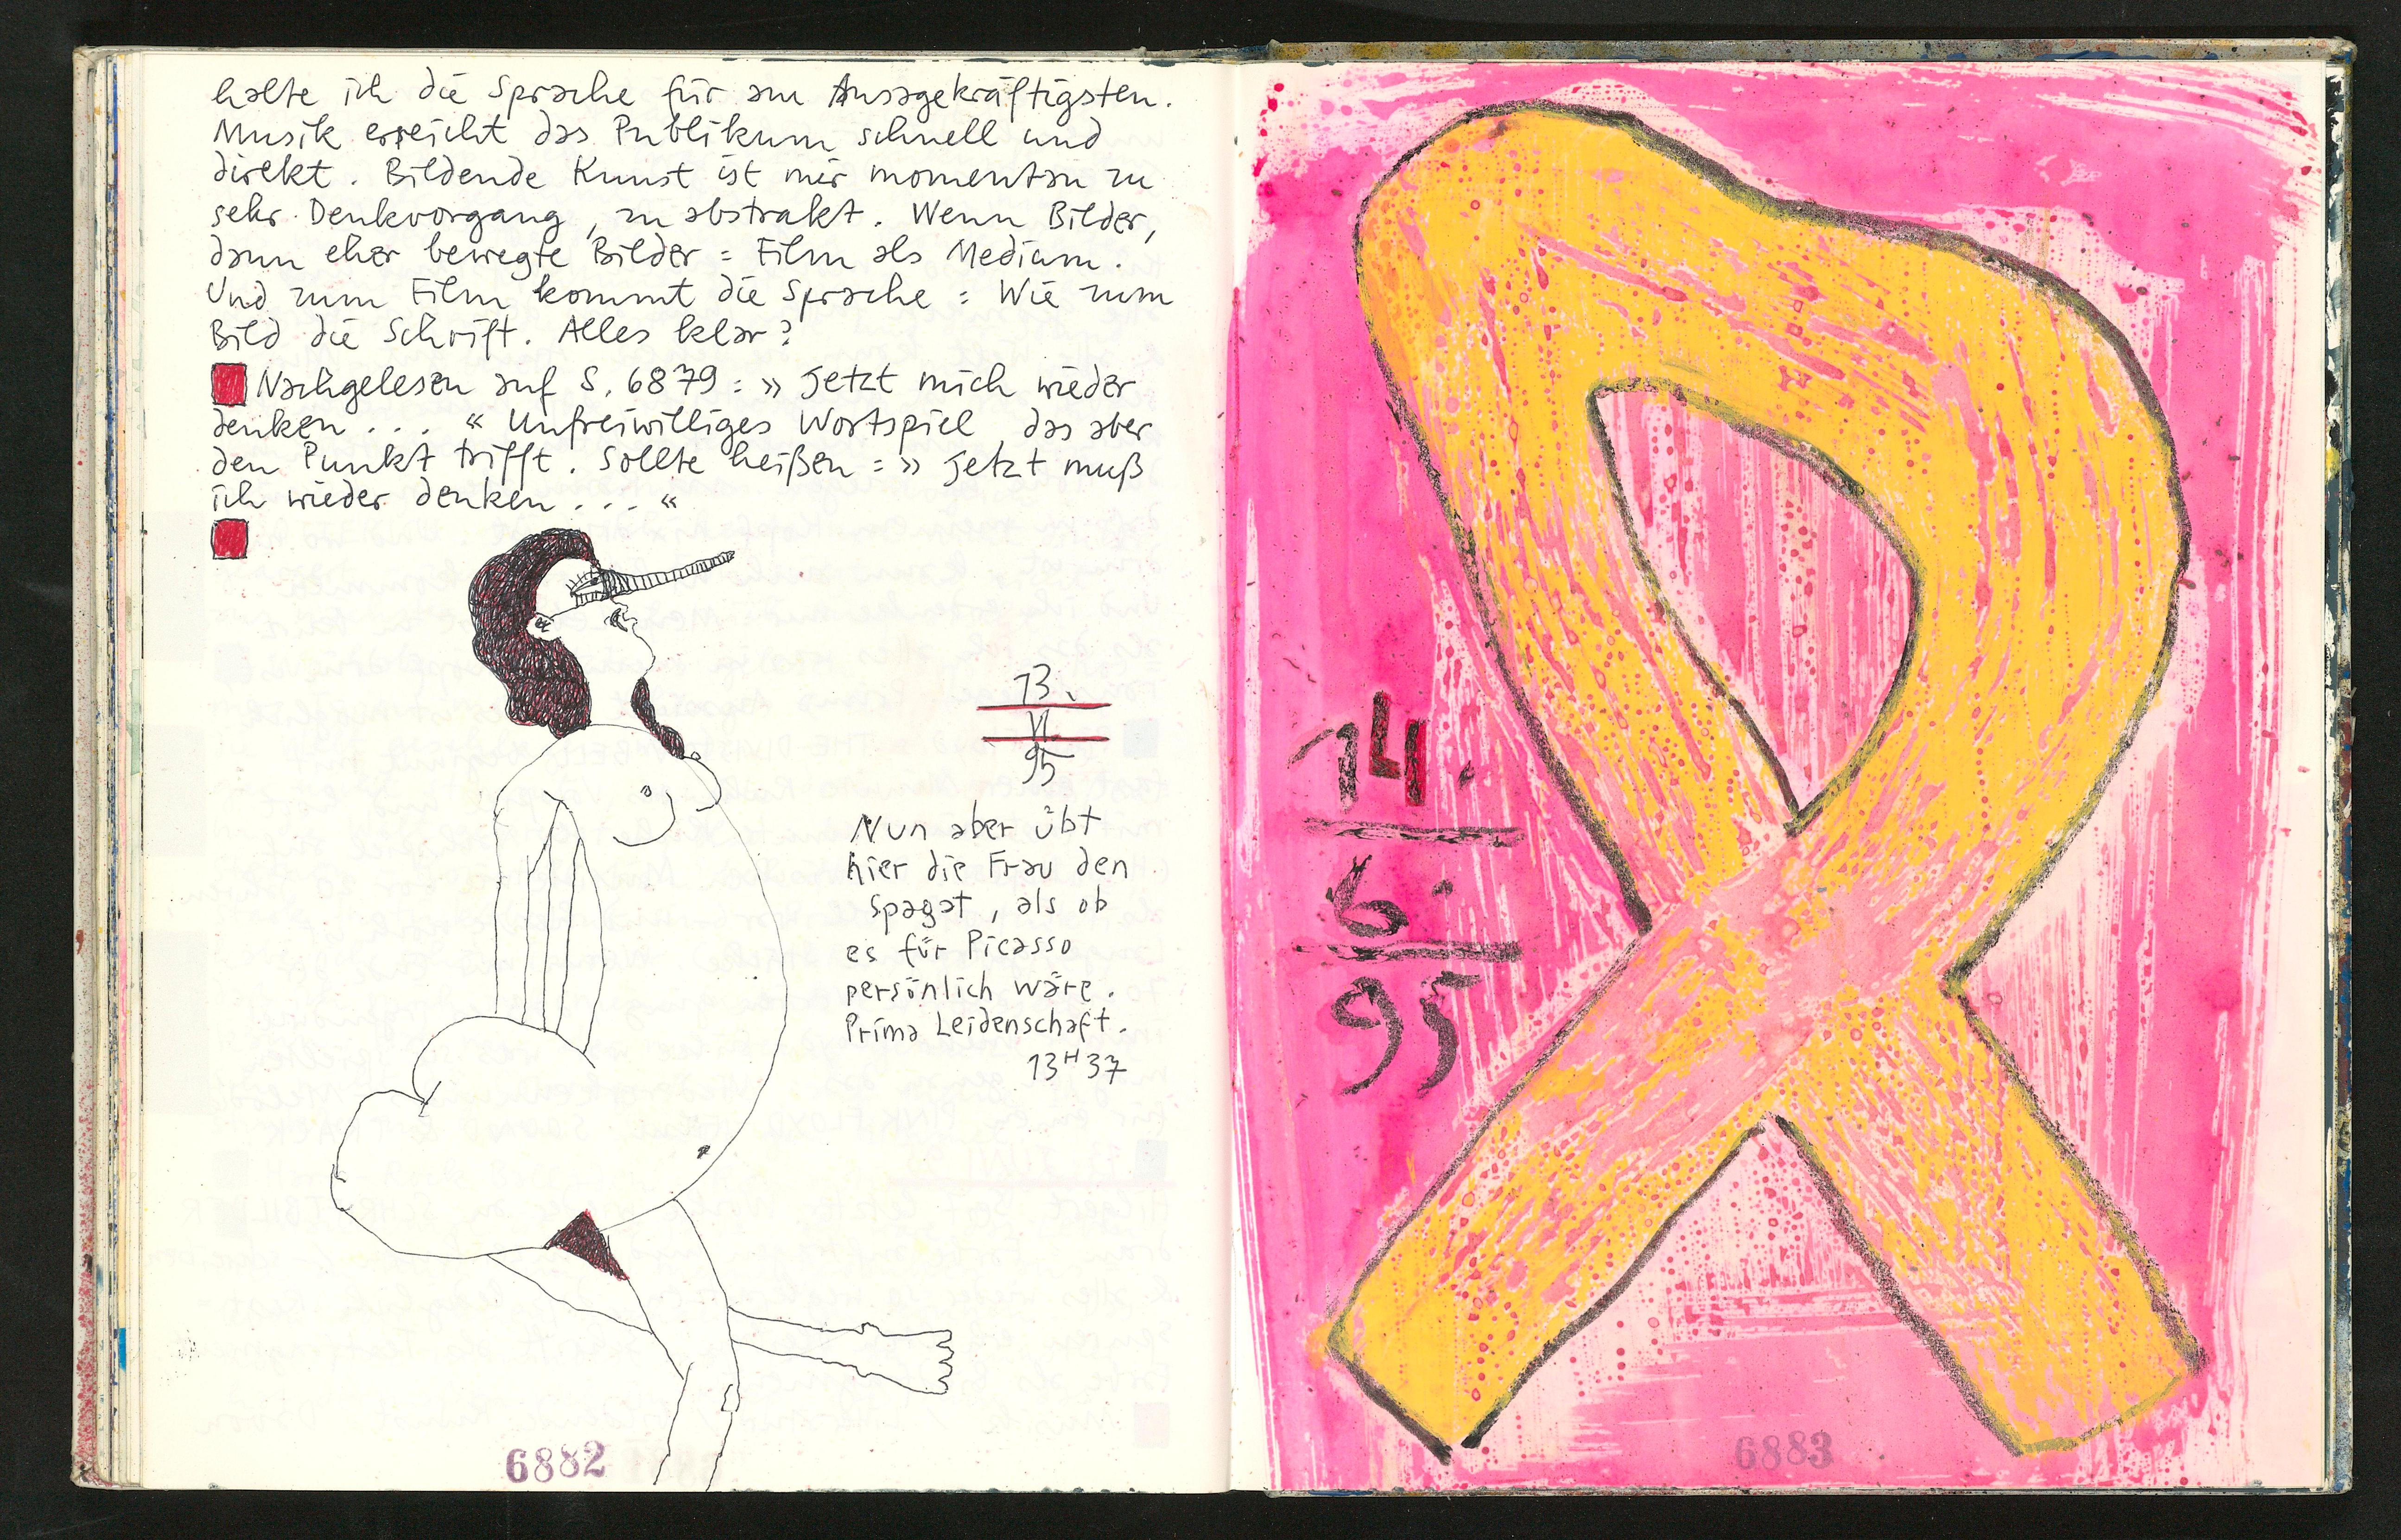 halte ich die Sprache für am Aussagekräftigsten.
Musik erreicht das Publikum schnell und
direkt. Bildende Kunst ist mir momentan zu
sehr Denkvorgang, zu abstrakt. Wenn Bilder,
dann eher bewegte Bilder = Film als Medium.
Und zum Film kommt die Sprache = Wie zum
Bild die Schrift. Alles klar?
Nachgelesen auf S. 6879 = » Jetzt mich wieder
denken . . . « Unfreiwilliges Wortspiel, das aber
den Punkt trifft. Sollte heißen = » Jetzt muß
ich wieder denken . . . «
13.
VI.
95
Nun aber übt
hier die Frau den
Spagat, als ob
es für Picasso
persönlich wäre.
Prima Leidenschaft.
13H37
6882
14.
6.
95
6883